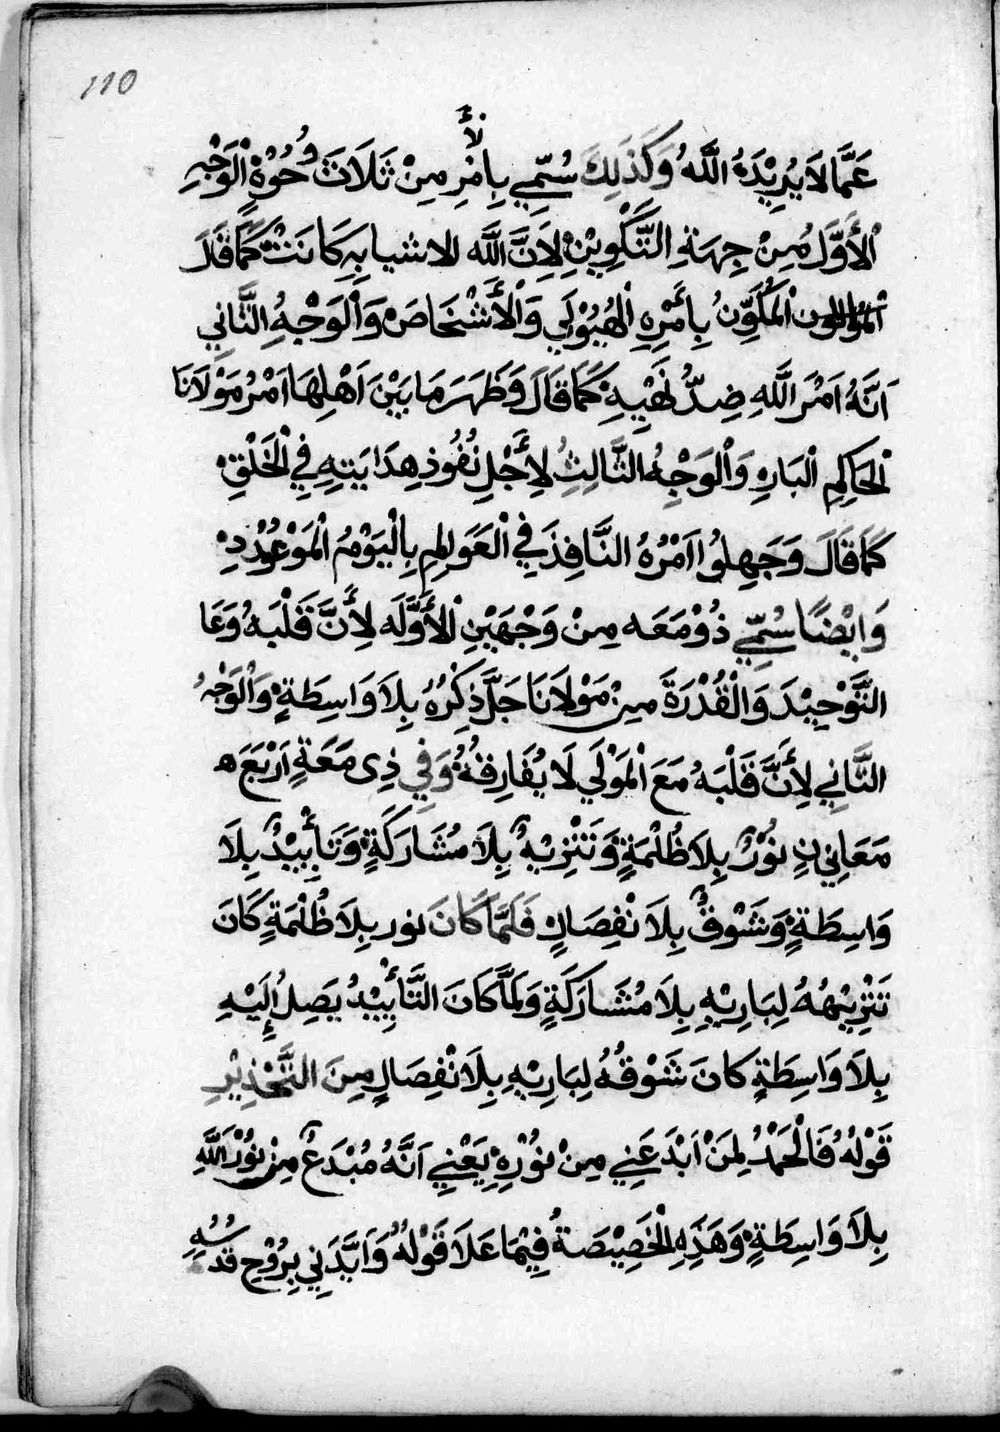 110
عَمَّا لَا يُرِيْدَهُ اللَّهُ وَكَذَلِكَ سُمِّيَ بِالأَمْرِ مِنْ ثَلَاثَ وُجُوْهٍ الْوَجْهِ
الْأَوَّلَ مِنْ جِهَةِ التَّكْوِيْنِ لِاَنَّ اللَّه الاشيا بِهِ كَانَتْ كَمَا قَالَ
الْمُكَوِّنُ بِأَمْرِهِ الْهُيُوْلَي وَالْأَشْخَاصَ وَالْوَجْهُ الثَّانِي
اَنَّهُ اَمْرَ اللَّهِ ضِدُّ نَهْيِهِ كَمَا قَالَ وَظَهَرَ مَا بَيْنَ اَهْلِهَا اَمْرُ مَوْلَانَا
الْحَاكِمِ الْبَارِ وَالْوَجْهُ الثَّالِثُ لِأَجْلِ نُفُوذِ هِدَايَتِهِ فِي الْخَلْقِ
كَمَا قَالَ وَجَهِلُوا اَمْرُهُ النَّافِذَ فِي الْعَوَالِمِ بِالْيَوْمُ الْمَوْعُوْدِ
وَايْضًا سُمِّيَ ذُوْ مَعَه مِنْ وَجْهَيْنِ الْأَوَّلَه لِأَنَّ قَلْبَهُ وَعَا
التَّوْحِيْدَ وَالْقُدْرَةَ مِنْ مَوْلَانَا جَلَّ ذِكْرُهُ بِلَا وَاسِطَةٍ وَالْوَجْهُ
الثَّانِي لِأَنَّ قَلْبَهُ مَعَ الْمَوْلَي لَا يُفَارِقُهُ وَفِي ذِي مَعَةٍ اَرْبَعَه
مَعَانِيَ نُوْرٌ بِلَا ظُلْمَةٍ وَتَنْزِيْهٌ بِلَا مُشَارَكَةٍ وَتَأْيِيْدٌ بِلَا
وَاسِطَةٍ وَشَوْقٌ بِلَا نْفِصَالٍ فَلَمَّا كَانَ نور بِلَا ظُلْمَةٍ كَانَ
تَنْزِيْهُهُ لِبَارِيْهِ بِلَا مُشَارَكَةٍ وَلَمَّا كَانَ التَّأْيِيْدُ يَصِلُ إِلَيْهِ
بِلَا وَاسِطَةٍ كَانَ شَوْقُهُ لِبَارِيْهِ بِلَا نْفِصَالٍ مِنَ التَّحْذِيْرِ
قَوْلُهُ فَالْحَمْدُ لِمَنْ اَبْدَعَنِي مِنْ نُوْرِهِ يَعْنِي اَنَّهُ مُبْدَعٌ مِنْ نُوْرِ اللَّهِ
بِلَا وَاسِطَةٍ وَهَذِهِ الْخَصِيْصَةُ فِيْمَا عَلَا قَوْلُهُ وَاَيَّدَنِي بِرُوْحِ قُدُسِهِ